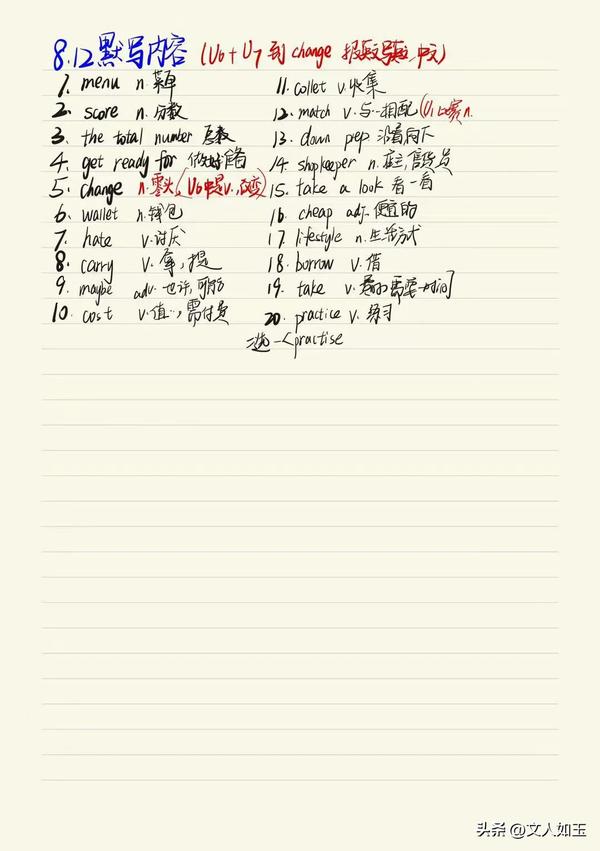 8.12默写内容 (U6+U7到change 英文 中文)
1. menu n. 菜单
2. score n. 分数
3. the total number 总数
4. get ready for 做好准备
5. change n. 零头 (U6中是v. 改变)
6. wallet n. 钱包
7. hate v. 讨厌
8. carry v. 拿, 提
9. maybe adv. 也许, 可能
10. cost v. 值…, 需付费
11. collet v. 收集
12. match v. 与…相配 (U1比赛n.
13. down prep 沿着向下
14. shopkeeper n. 店主, 售货员
15. take a look 看一看
16. cheap adj. 便宜的
17. lifestyle n. 生活方式
18. borrow v. 借
19. take v. 需要…时间
20. practice v. 练习
选一 practise
头条 @文人如玉